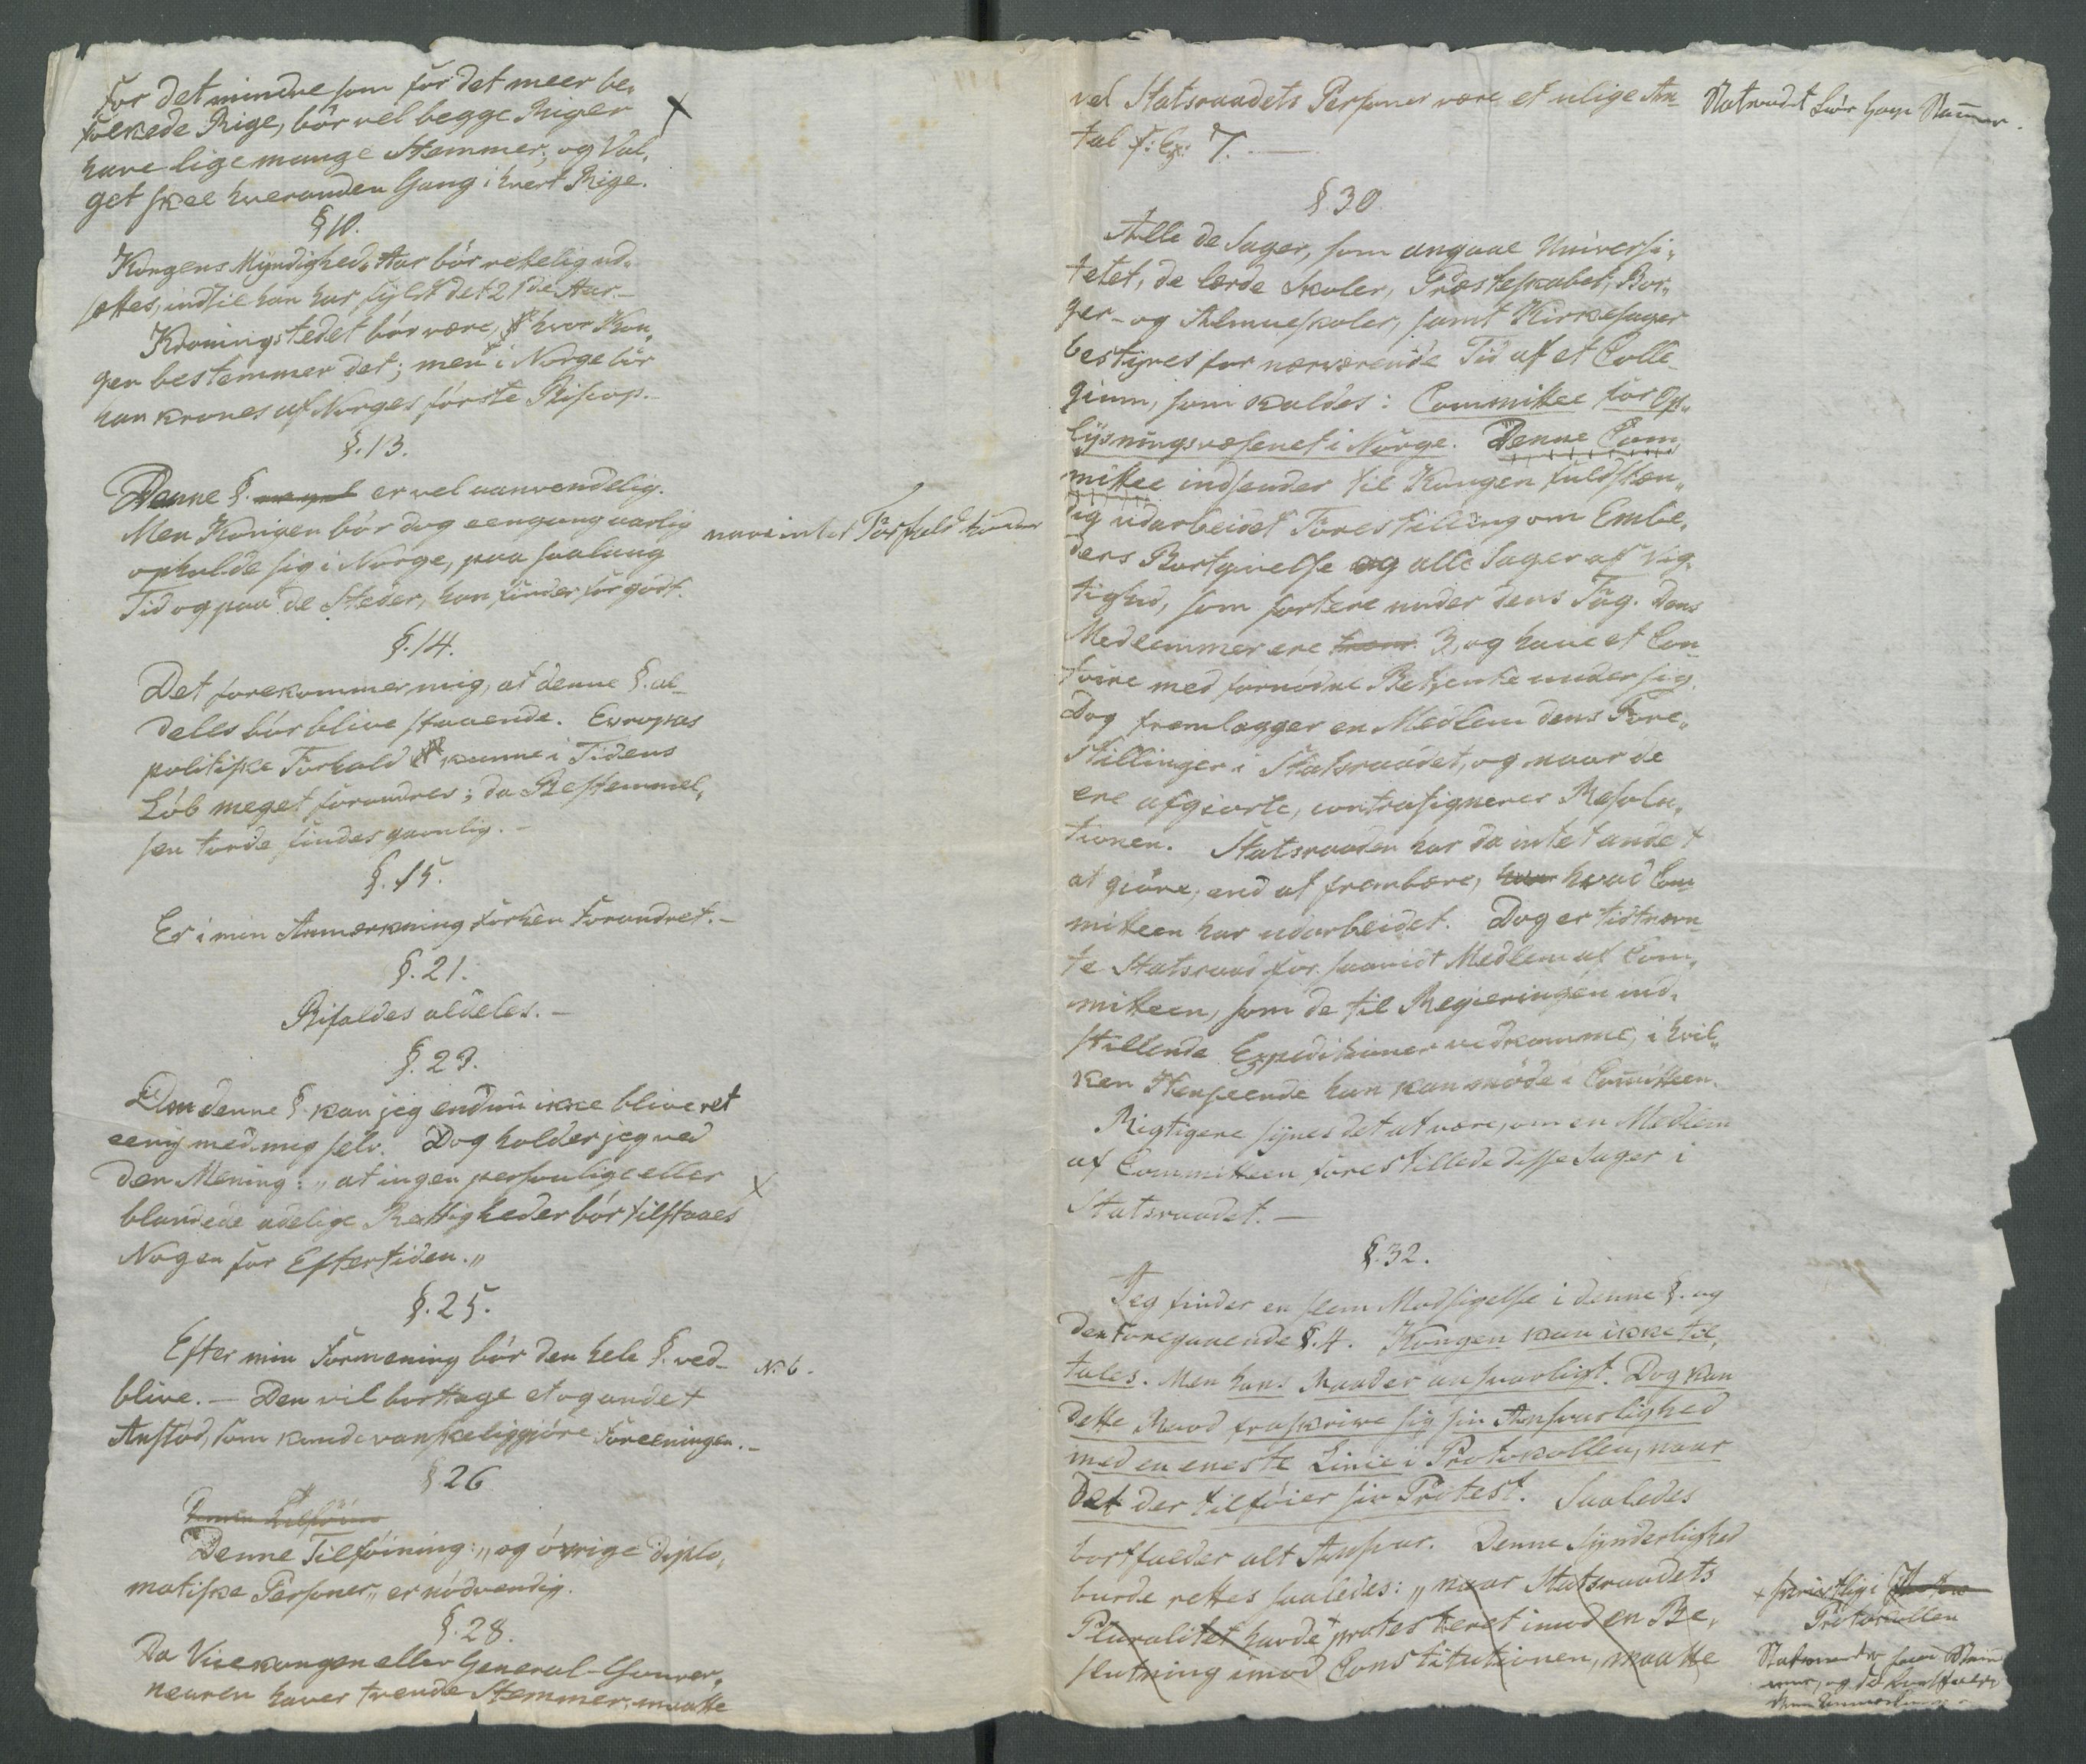 for det mindre som for det meer be„
folkede Rige, bör vel begge Riger
have lige mange Stemmer, og Val„
get skee hveranden Gang i hvert Rige.
§ 10.
Kongens Myndigheds Aar bör rettelig ud„
settes, indtil han har fyldt det 21de Aar.–
Kroningstedet bör være, hvor Kon„
gen bestemmer det; men i Norge bör
han krones af Norges förste Biscop.–
§. 13.
Denne §. er vel uanvendelig.
Men Kongen bör dog eengang aarlig
opholde sig i Norge, paa saalang
Tid og paa de Steder, han finder for godt.
naar intet Forfald hindrer
§. 14.
Det forekommer mig, at denne §. al„
deles bör blive staaende. Europas
politiske Forhold kunne i Tidens
Löb meget forandres; da Bestemmel„
sen torde findes gavnlig.–
§. 15.
Er i min Anmærkning forhen forandret.–
§. 21.
Bifaldes aldeles.–
§. 23.
Om denne §. kan jeg endnu ikke blive ret
eenig med mig selv. Dog holder jeg ved
den Mening: „at ingen personlige eller
blandede adelige Rettigheder bör tilstaaes
Nogen for Eftertiden.„
§. 25.
Efter min Formening bör den hele §. ved–
blive.– Den vil borttage et og andet
Anstöd, som kunde vanskeliggjöre Foreeningen.–
N: 6.
§ 26
Denne Tilföining
Denne Tilföining: „og övrige diplo„
matiske Personer„ er nödvendig.
§. 28.
Da Vicekongen eller General–Gouver„
neuren haver tvende Stemmer, maatte
vel Statsraadets Personer være et ulige An–
tal f: Ex: 7.–
Statsraadet bör have Stemmer.
§. 30
Alle de Sager, som angaae Universi„
tetet, de lærde Skoler, Præsteskabet, Bor„
ger– og Almueskoler, samt Kirkesager
bestyres for nærværende Tid af et Colle–
gium, som kaldes: Committee for Op„
lysningsvæsenet i Norge. Denne Com„
mittee indsender til Kongen fuldstæn„
dig udarbeidet Forestilling om Embe„
ders Bortgivelse og alle Sager af Vig„
tighed, som sortere under dens Fag. Dens
Medlemmer ere 3, og have et Con–
toire med fornödne Betjente under sig.
Dog fremlægger en Medlem dens Fore„
stillinger i Statsraadet, og naar de
ere afgiorte, contrasignerer Resolu„
tionen. Statsraaden har da intet andet
at giöre, end at frembære, hvad Com
mitteen har udarbeidet. Dog er tidtnævn–
te Statsraad for saavidt Medlem af Com„
mitteen, som de til Regieringen ind„
stillende Expeditioner vedkomme, i hvil„
ken Henseende han kan möde i Comitteen.
Rigtigere synes det at være, om en Medlem
af Committeen forestillede disse Sager i
Statsraadet.–
§. 32.
Jeg finder en slem Modsigelse i denne §. og
den foregaaende §. 4. Kongen kan ikke til„
tales. Men hans Raad er ansvarligt. Dog kan
dette Raad fraskrive sig sin Ansvarlighed
med en eneste Linie i Protokollen, naar
det der tilföier sin Protest. Saaledes
bortfalder alt Ansvar. Denne Synderlighed
burde rettes saaledes: „naar Statsraadets
Pluralitet havde protesteret imod en Be„
slutning imod Constitutionen, maatte
+ skriftlig i
Protokollen